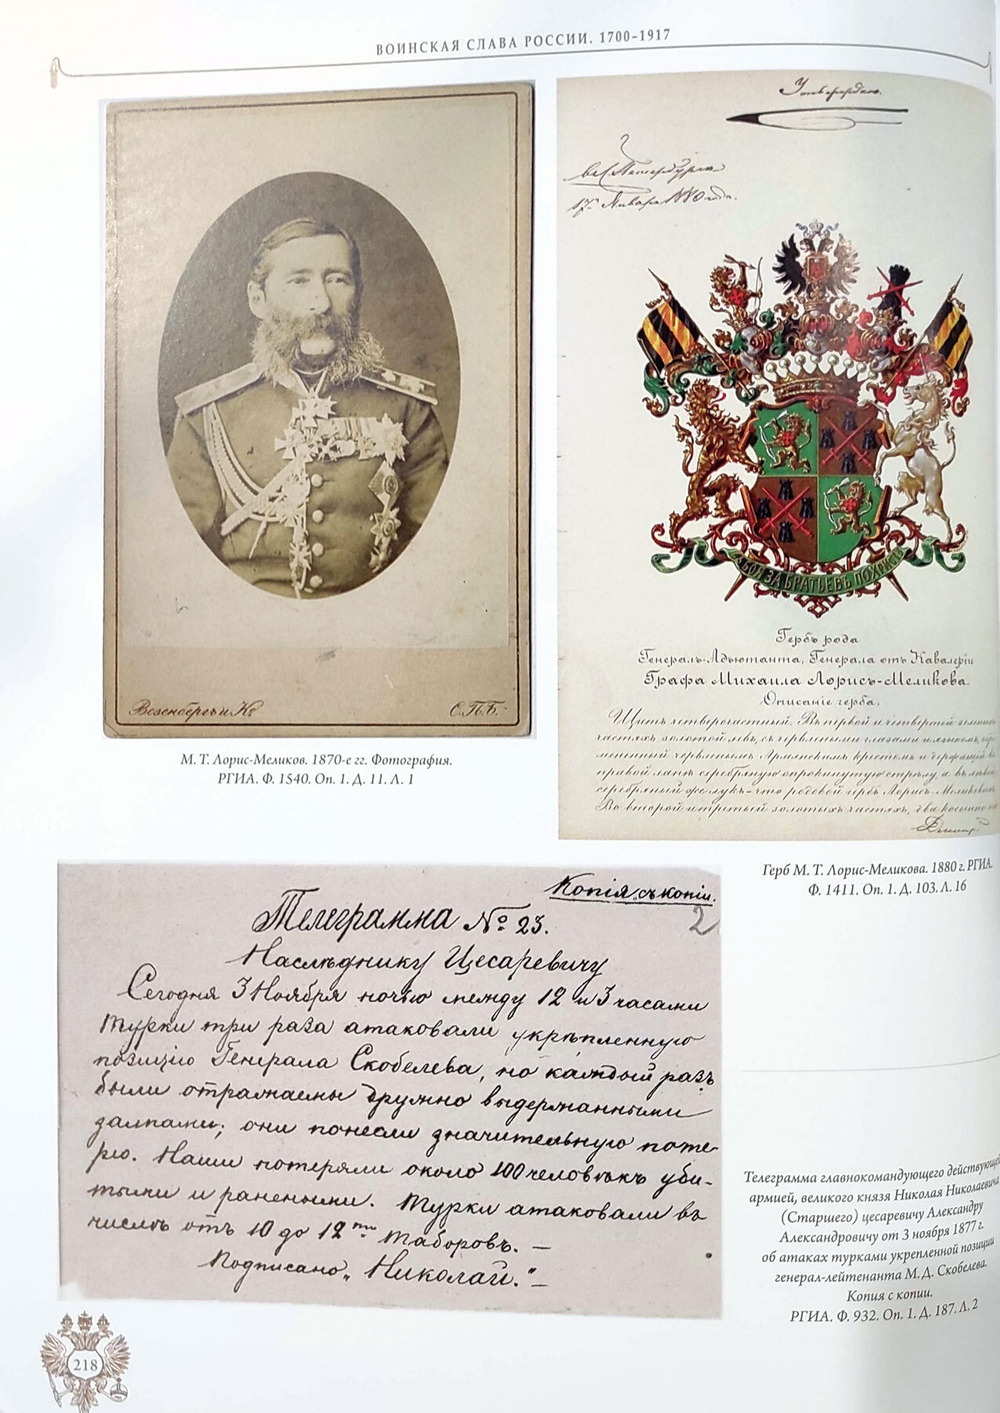 ВОИНСКАЯ СЛАВА РОССИИ. 1700–1917
Везенбергъ и Ко
С.П.Б.
М. Т. Лорис-Меликов. 1870-е гг. Фотография.
РГИА. Ф. 1540. Оп. 1. Д. 11. Л. 1
Утверждаю.
въ С. Петербургѣ
17 Января 1880 года.
ЗА БРАТЬЕВЪ ПО ХРИСТУ
Гербъ рода
Генералъ-Адъютанта, Генерала отъ Кавалеріи
Графа Михаила Лорисъ-Меликова.
Описаніе герба.
Щитъ четверочастный. Въ первой и четвертой
частяхъ золотой левъ, съ червлеными глазами и языкомъ,
червленымъ Армянскимъ крестомъ и держащій въ
правой лапѣ серебряную опрокинутую стрѣлу, а въ лѣвой
серебряный же лукъ – что родовой гербъ Лорисъ-Меликовыхъ
Во второй и третьей золотыхъ частяхъ, два
Герб М. Т. Лорис-Меликова. 1880 г. РГИА.
Ф. 1411. Оп. 1. Д. 103. Л. 16
Копія съ копіи.
2
Телеграмма № 23.
Наслѣднику Цесаревичу
Сегодня 3 Ноября ночью между 12 и 3 часами
Турки три раза атаковали укрѣпленную
позицію Генерала Скобелева, но каждый разъ
были отражаемы дружно выдержанными
залпами; они понесли значительную поте-
рю. Наши потеряли около 100 человѣкъ уби-
тыми и ранеными. Турки атаковали въ
числѣ отъ 10 до 12ти таборовъ. —
Подписано „Николай.“ —
Телеграмма главнокомандующего действующей
армией, великого князя Николая Николаевича
(Старшего) цесаревичу Александру
Александровичу от 3 ноября 1877 г.
об атаках турками укрепленной позиции
генерал-лейтенанта М. Д. Скобелева.
Копия с копии.
РГИА. Ф. 932. Оп. 1. Д. 187. Л. 2
218